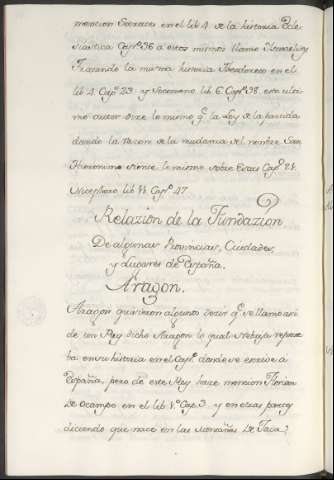 mencion Socrates en el lib 4 de la historia Ecle
siastica Cap.º 36 a estos mismos llama Ismaelitas
Tratando la misma historia Theodoreto en el
lib 4. Cap.º 23 y Sozomeno lib 6. Cap.º 38. este ulti
mo autor dice lo mismo q.e la Ley de la partida
dando la razon de la mudanza del nombre San
Hieronimo siente lo mismo sobre Esaias Cap.º 21.
Nicephoro lib 11 Cap.º 47
Relazion de la Fundazion
De algunas Provincias, Ciudades,
y Lugares de España.
Aragon.
Aragon quisieron algunos decir q.e se llamo asi
de un Rey dicho Aragon lo qual Nebrija
ba en su historia en el Cap.º donde se escrive a
España, pero de este Rey hace mencion Florian
de Ocampo en el lib 1.º Cap. 3 y en otras partes
diciendo que nace en las Montañas De Jaca,